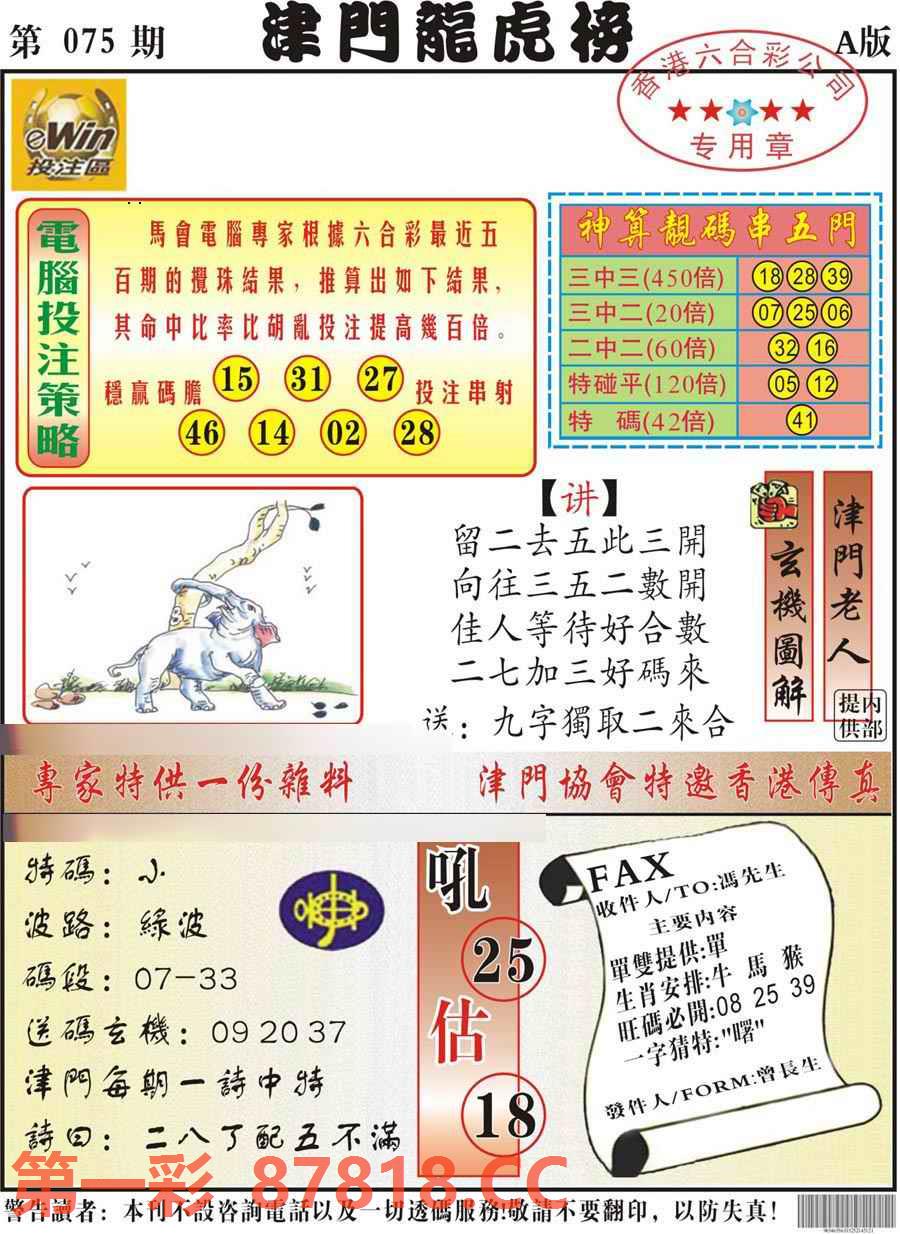 第 075 期
津門龍虎榜
A版
香港六合彩公司
专用章
eWin
投注區
電腦投注策略
馬會電腦專家根據六合彩最近五
百期的攪珠結果，推算出如下結果，
其命中比率比胡亂投注提高幾百倍。
穩贏碼膽 15 31 27 投注串射
46 14 02 28
神算靚碼串五門
三中三(450倍) 18 28 39
三中二(20倍) 07 25 06
二中二(60倍) 32 16
特碰平(120倍) 05 12
特 碼(42倍) 41
【讲】
留二去五此三開
向往三五二數開
佳人等待好合數
二七加三好碼來
送：九字獨取二來合
玄機圖解
津門老人
内部提供
專家特供一份雜料
津門協會特邀香港傳真
特碼：小
波路：綠波
碼段：07-33
送碼玄機：09 20 37
津門每期一詩中特
詩曰：二八了配五不滿
吼
25
估
18
FAX
收件人/TO:馮先生
主要内容
單雙提供:單
生肖安排:牛 馬 猴
旺碼必開:08 25 39
一字猜特:"曙"
發件人/FORM:曾長生
第一彩 87818.CC
警告讀者：本刊不設咨詢電話以及一切透碼服務!敬請不要翻印，以防失真!